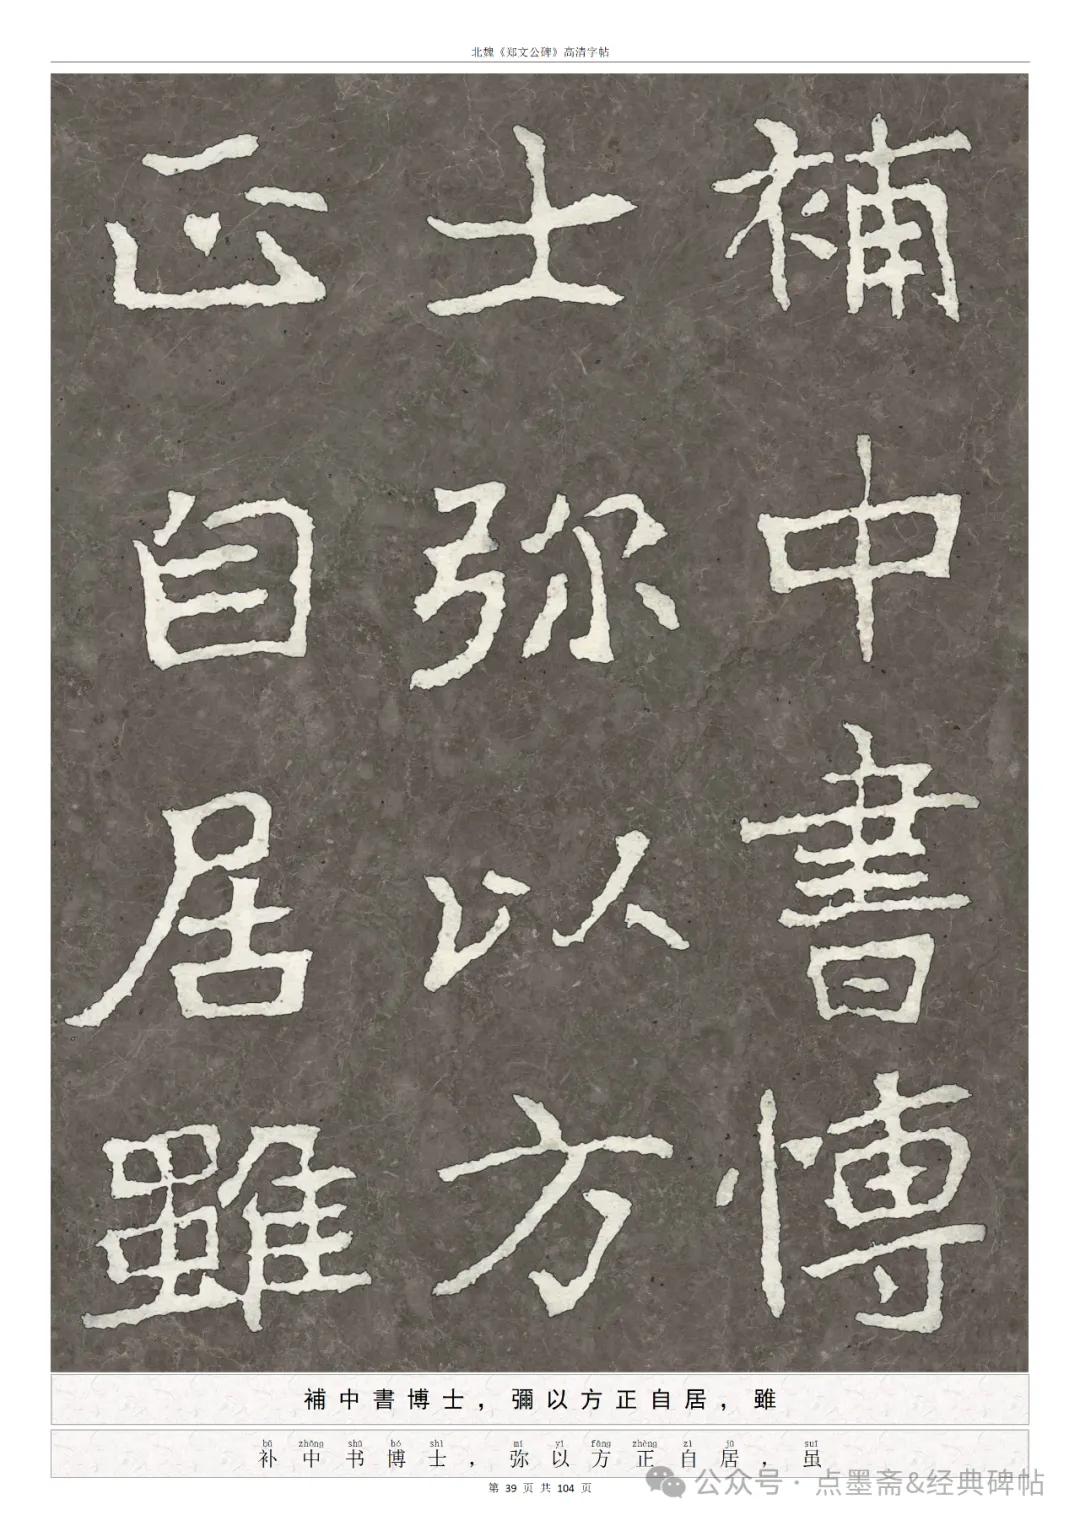 北魏《郑文公碑》高清字帖
補中書博
士弥以方
正自居雖
補中書博士，彌以方正自居，雖
bǔ zhōng shū bó shì mí yǐ fāng zhèng zì jū suī
补中书博士，弥以方正自居，虽
第 39 页 共 104 页
公众号·点墨斋&经典碑帖